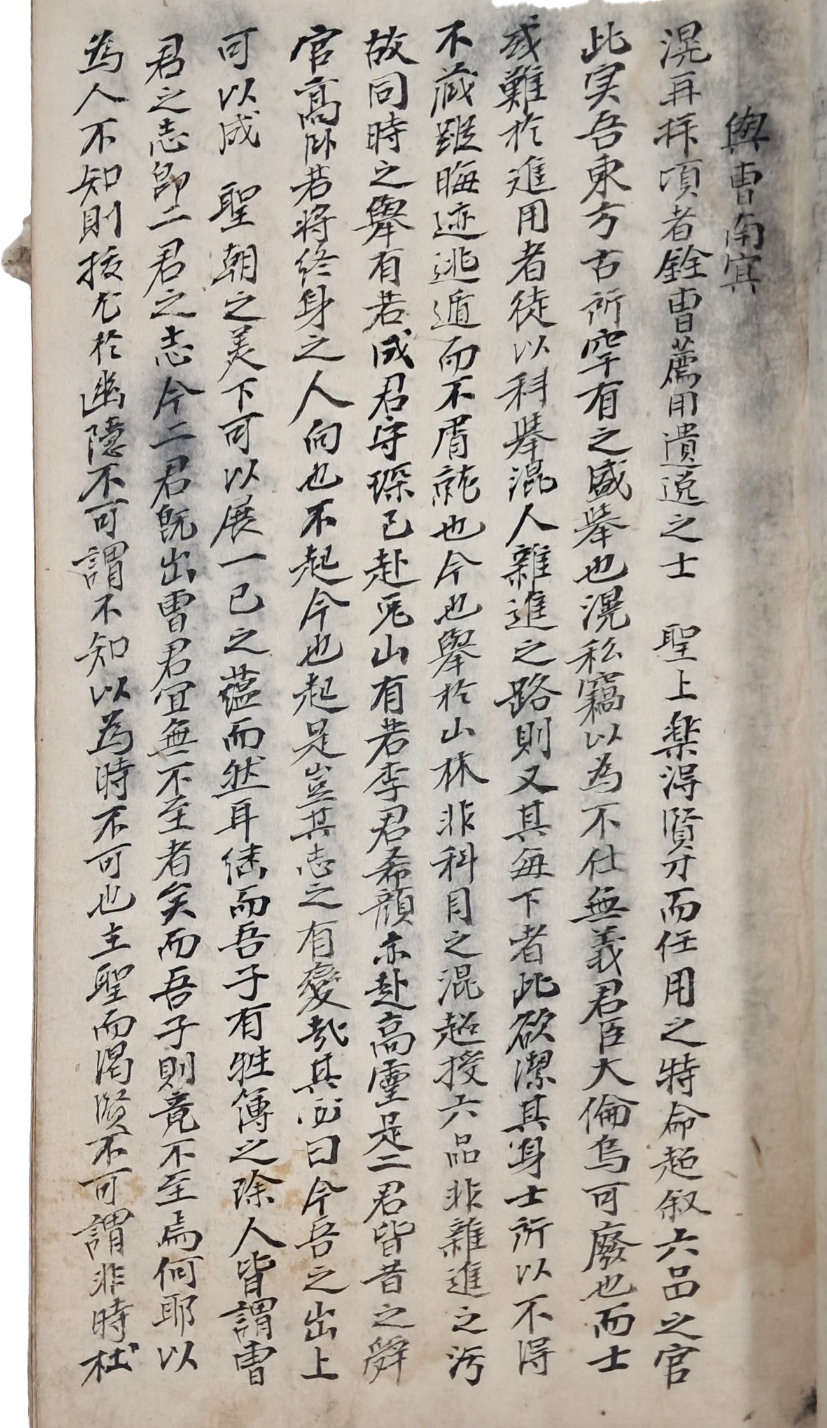 與曺南㝠
滉再拝頃者銓曺薦用遺逸之士 聖上楽得賢才而任用之特命超叙六品之官
此实吾東方古所罕有之盛挙也滉私竊以為不仕無義君臣大倫烏可廢也而士
或難於進用者徒以科挙混人雜進之路則又其每下者此欲潔其身士所以不得
不藏蹤晦迹逃遁而不屑就也今也舉於山林非科目之混超授六品非雜進之汚
故同時之舉有若成君守琛已赴兎山有若李君希顔亦赴高霊是二君皆昔之辤
官高卧若将終身之人向也不起今也起是豈其志之有變哉其必曰今吾之出上
可以成 聖朝之美下可以展一己之蘊而然耳継而吾子有牲簿之除人皆謂曺
君之志即二君之志今二君既出曺君宜無不至者矣而吾子則竟不至焉何耶以
為人不知則拔尤於幽隱不可謂不知以為時不可也主聖而渇賢不可謂非時杜